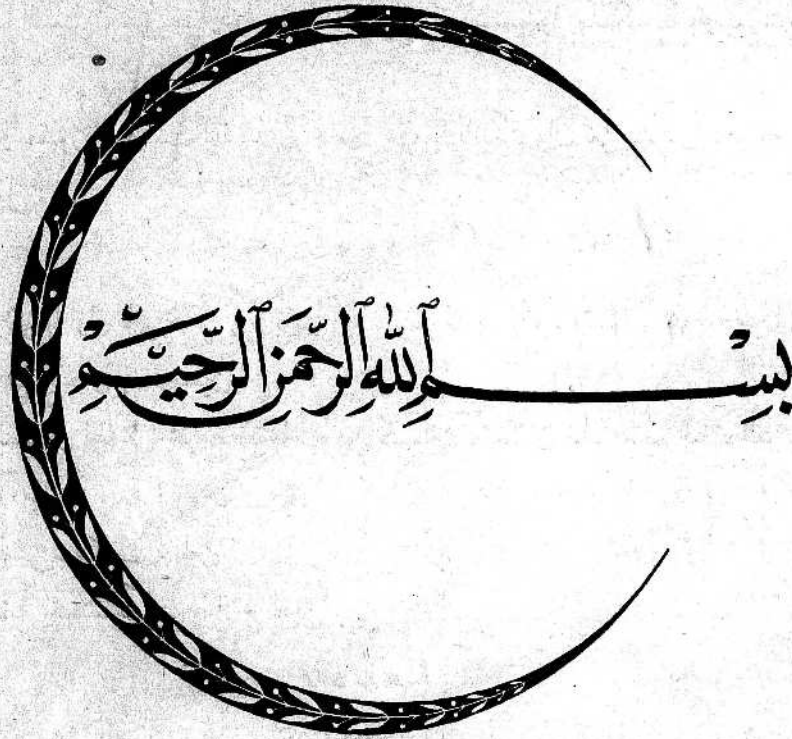 بِسْمِ ٱللّٰهِ ٱلرَّحْمَنِ ٱلرَّحِيْمِ